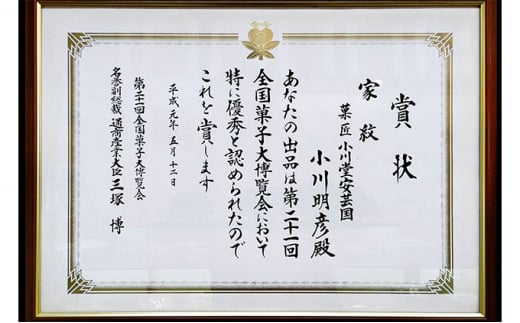 賞状
家紋
菓匠 小川堂安芸国
小川明彦殿
あなたの出品は第二十一回
全国菓子大博覧会において
特に優秀と認められたので
これを賞します
平成元年五月十二日
第二十一回全国菓子大博覧会
名誉副総裁 通商産業大臣 三塚 博